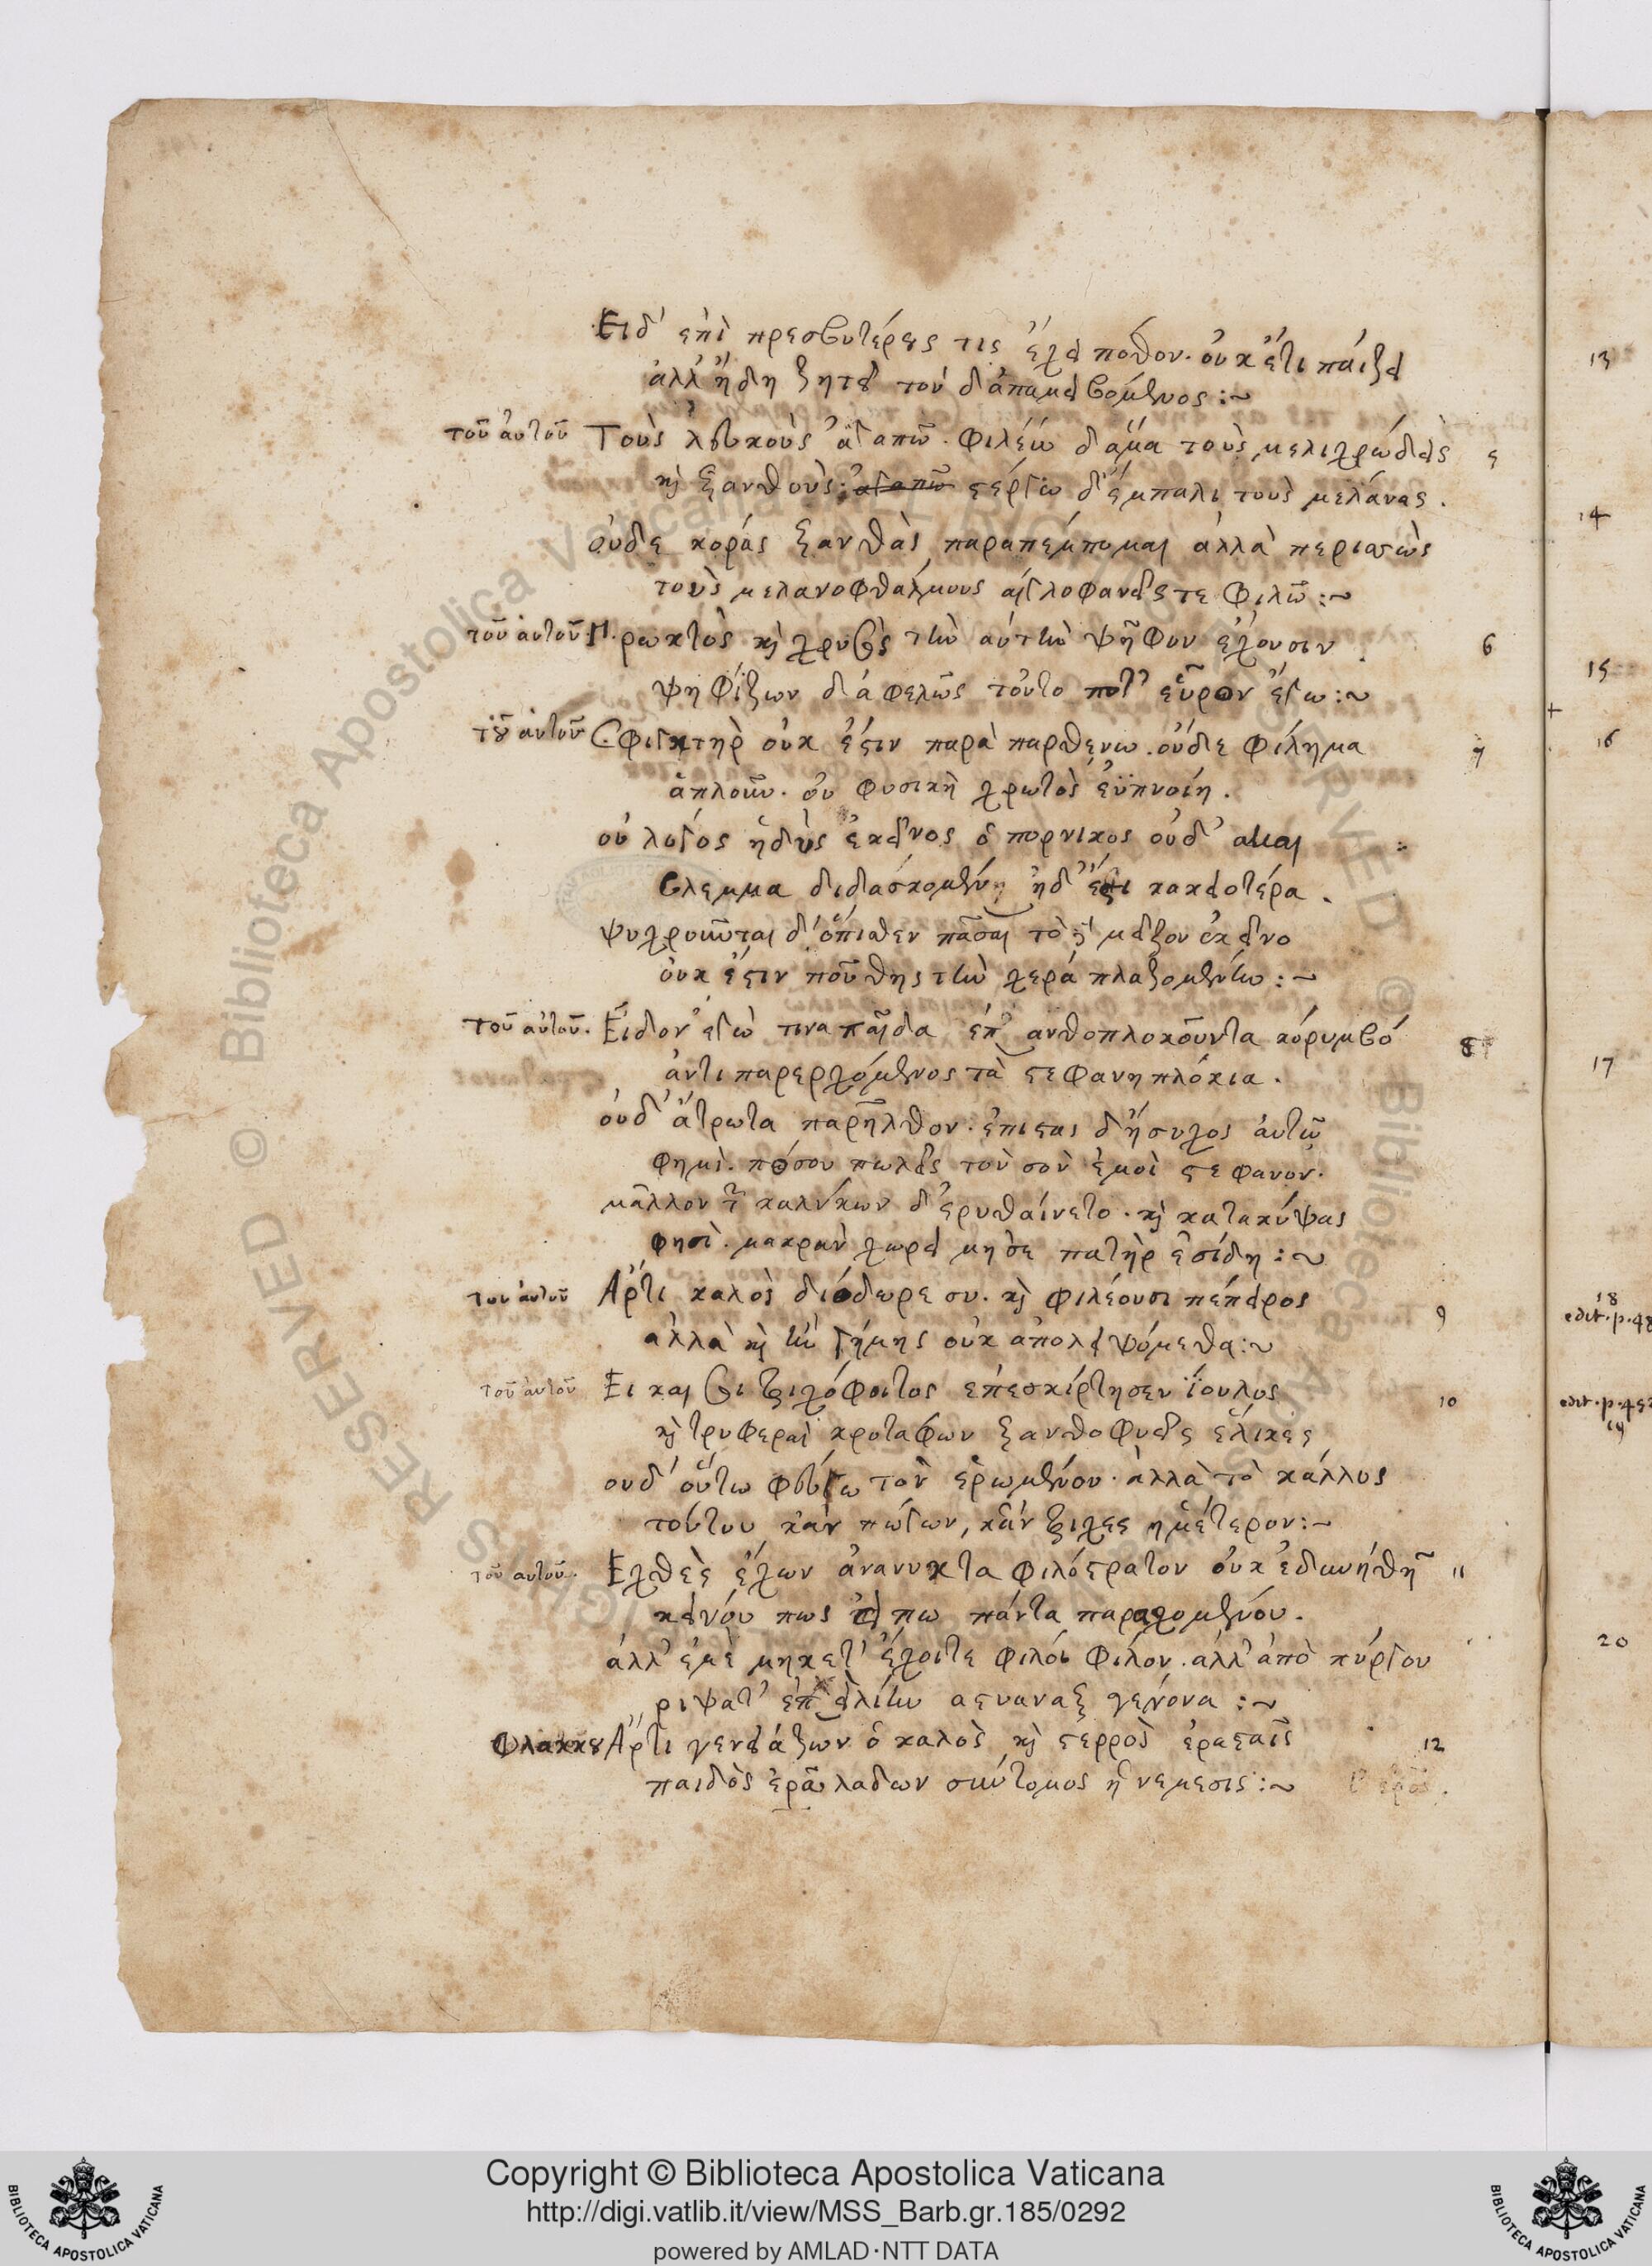 Ειδ' επὶ πρεσβυτέρους τις ἔχει πόθον. οὐκ ἔτι παίζει 13
ἀλλ' ἤδη ζητεῖ τὸν δ' ἀπαμειβόμενος :~
τοῦ αὐτοῦ Τοὺς λευκοὺς ἀγαπῶ. φιλέω δ' ἅμα τοὺς μελιχρώδεις ε
καὶ ξανθούς· ἀγαπῶ στέργω δ' ἔμπαλι τοὺς μελάνας. 14
οὐδε κορὰς ξανθὰς παραπέμπομαι ἀλλὰ περισσῶς
τοὺς μελανοφθάλμους αἰγλοφανεῖς τε φιλῶ :~
τοῦ αὐτοῦ Πρωκτὸς καὶ χρυσὸς τὴν αὐτὴν ψῆφον ἔχουσιν. 6 15
ψηφίζων δ' ἀφελῶς τοῦτο ποτ' εὗρον ἔγω :~
τοῦ αὐτοῦ Σφιγκτὴρ οὐκ ἔστιν παρὰ παρθενω. οὐδε φίλημα 7 16
ἁπλοῦν. οὐ φυσικὴ χρωτὸς ἐϋπνοίη.
οὐ λόγος ἡδὺς ἐκεῖνος ὁ πορνικος οὐδ'
βλεμμα διδασκομένη ἠδ' ἔστι κακιοτέρα.
ψυχροῦνται δ' ὄπιθεν πᾶσαι τὸ δὲ μεῖζον ἐκεῖνο
οὐκ ἔστιν ποῦ θῇς τὴν χερα πλαζομένην :~
τοῦ αὐτοῦ. Εἶδον ἐγὼ τινα παῖδα ἐπ' ανθοπλοκοῦντα κόρυμβο 8 17
ἀντιπαρερχόμενος τὰ στεφανηπλόκια.
οὐδ' ἄτρωτα παρῆλθον. ἐπιστας δ' ἥσυχος αὐτῷ
φημὶ. πόσου πωλεῖς τὸν σὸν ἐμοὶ στεφανον.
μᾶλλον τῶν καλύκων δ' ἐρυθαίνετο. καὶ κατακύψας
φησὶ. μακρὰν χώρει μη σε πατὴρ ἐσίδη :~
του αὐτοῦ Αρτι καλὸς διόδωρε συ. καὶ φιλέουσι πέπειρος 9 18 edit. p. 48
αλλὰ καὶ ἢν γήμῃς οὐκ ἀπολειψόμεθα :~
τοῦ αὐτοῦ Ει και σοι τριχόφοιτος ἐπεσκίρτησεν ἴουλος 10 edit. p. 19
καὶ τρυφεραὶ κροταφων ξανθοφυεῖς ἕλικες
ουδ' οὕτω φεύγω τὸν ἐρωμένον. ἀλλὰ τὸ κάλλος
τούτου κἂν πώγων, κἂν τριχες ἡμέτερον :~
τοῦ αυτοῦ. Εχθὲς ἔχων ἀνανυκτα φιλόστρατον οὐκ ἐδυνήθην 11
κεινου πως πω πάντα παρασχομένου.
ἀλλ' ἐμὲ μηκετ' ἔχοιτε φιλοι φίλον. ἀλλ' ἀπὸ πύργου 20
ριψατ' ἐπεὶ λίην αστυαναξ γεγονα :~
Φλακκου Ἄρτι γενειάζων ὁ καλὸς καὶ στερρὸς ἐρασταῖς 12
παιδὸς ἐρᾷ λαδων σύντομος ἡ νεμεσις :~
Copyright © Biblioteca Apostolica Vaticana
http://digi.vatlib.it/view/MSS_Barb.gr.185/0292
powered by AMLAD·NTT DATA
BIBLIOTECA APOSTOLICA VATICANA
BIBLIOTECA APOSTOLICA VATICANA